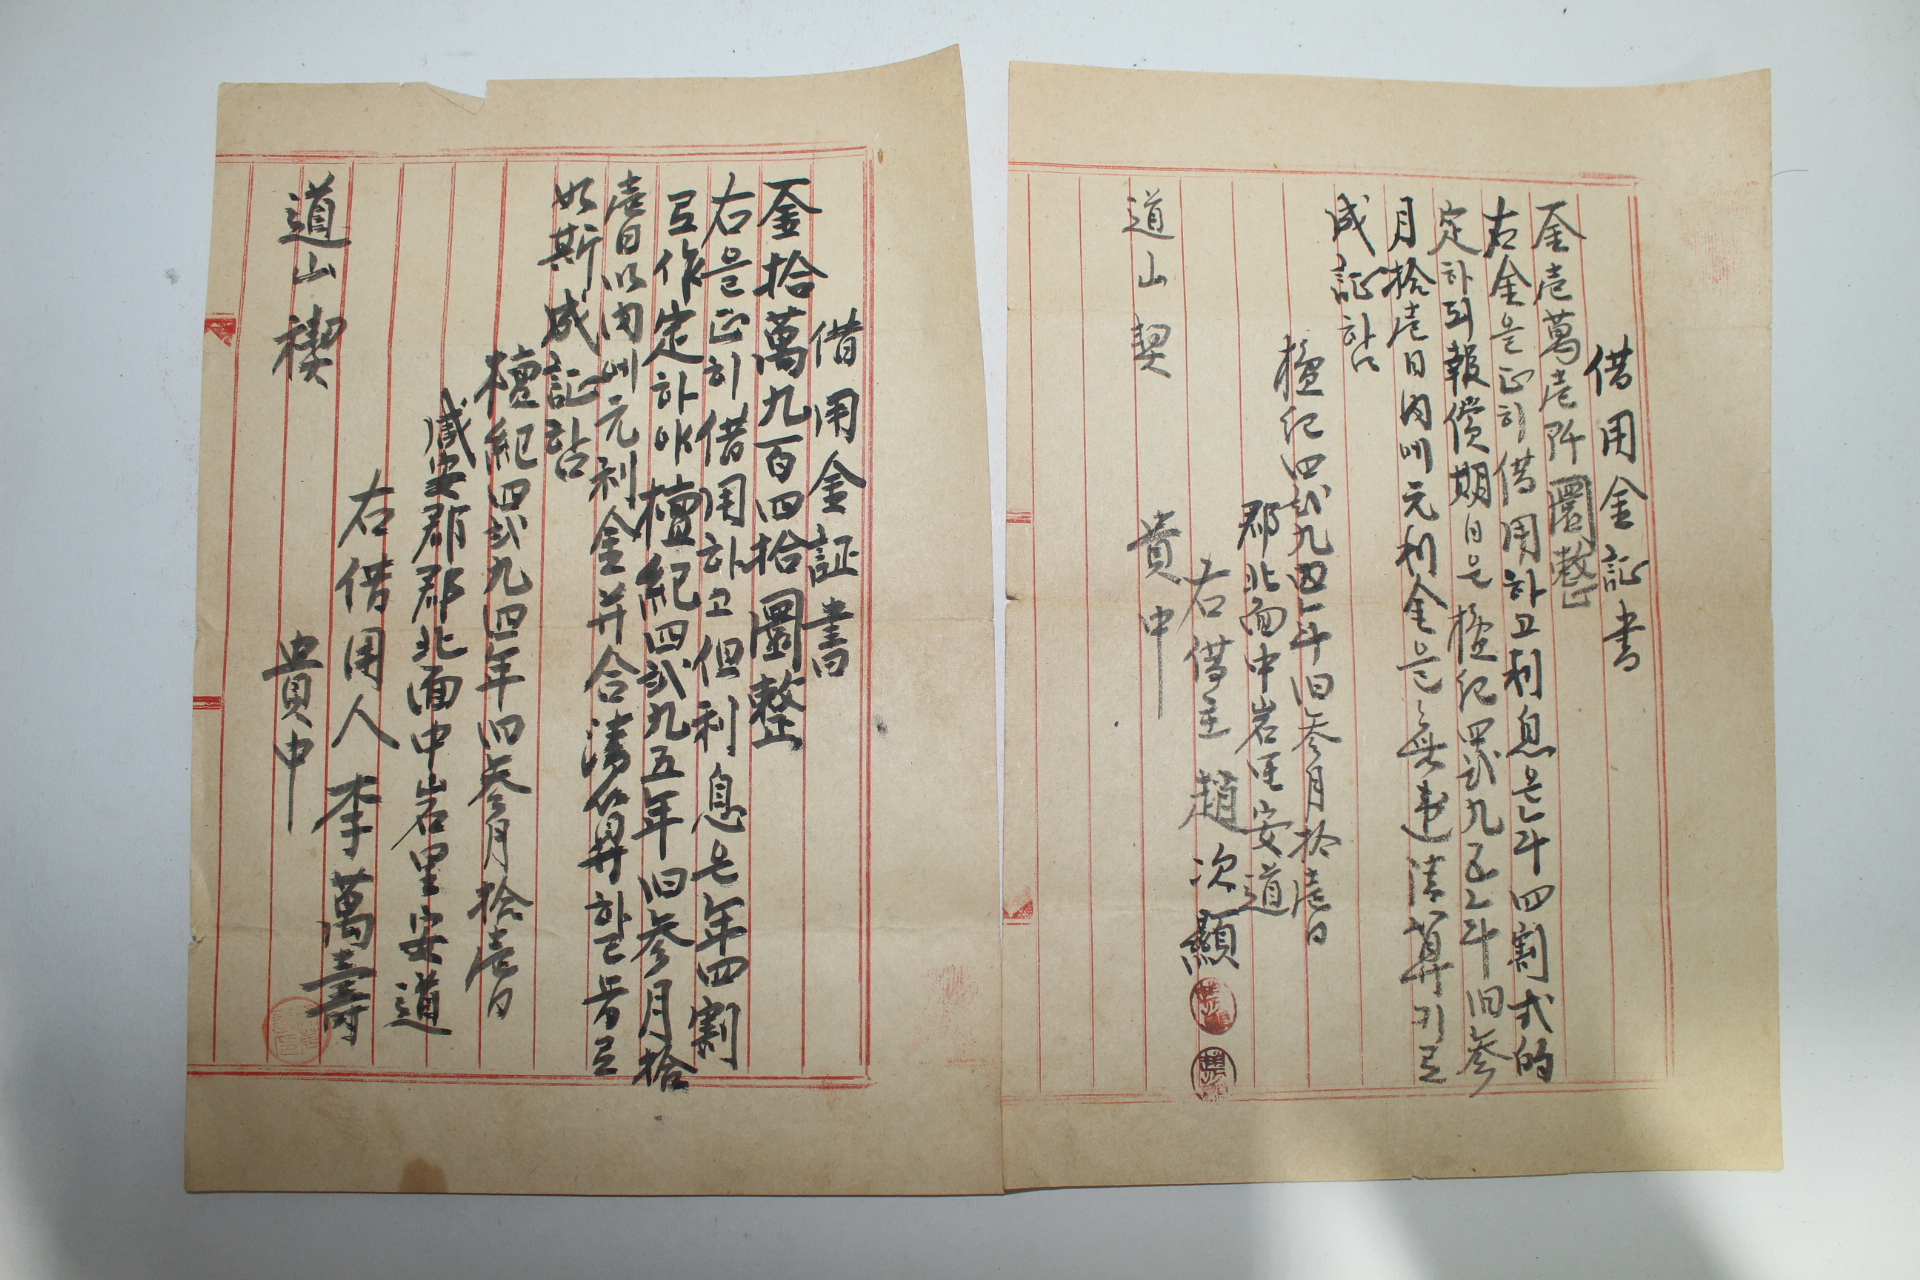 借用金証書
金壱萬壱阡圜整
右金은正히借用하고利息은年四割式的
定하되報償期日은檀紀四弐九五年旧參
月拾壱日內에元利金은無違淸算키로
成証함
檀紀四弐九四年旧參月拾壱日
郡北面中岩里安道
右借主 趙次顯
道山契 貴中
借用金証書
金拾萬九百四拾圜整
右은正히借用하고但利息은年四割
로作定하야檀紀四弐九五年旧參月拾
壱日以內에元利金并合淸算하므로
如斯成証함
檀紀四弐九四年旧參月拾壱日
咸安郡郡北面中岩里安道
右借用人 李萬壽
道山禊 貴中